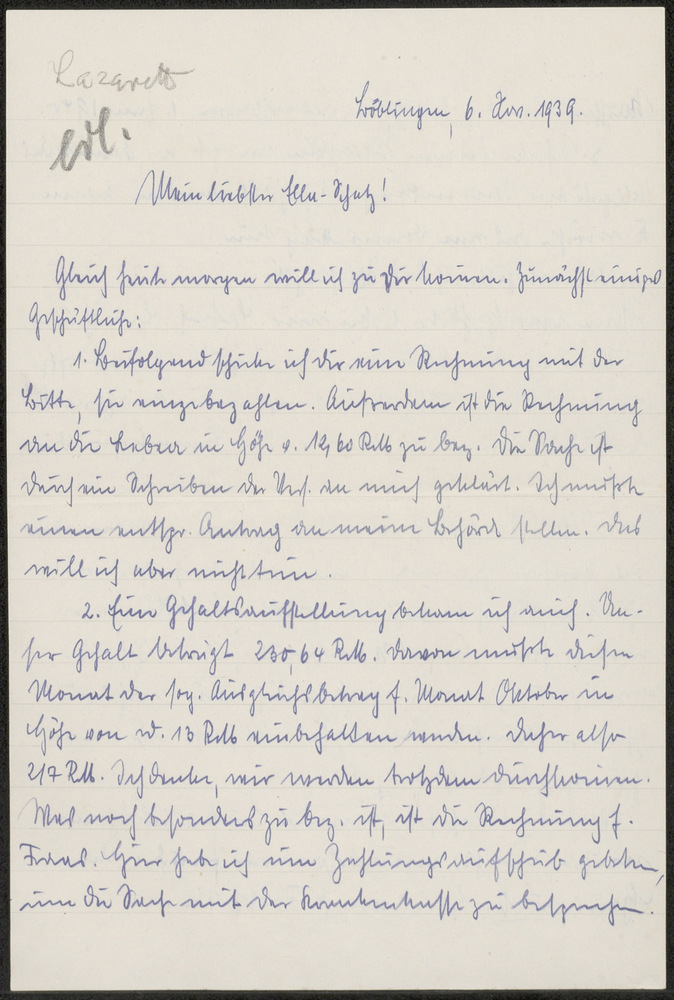 Lazarett
erl.
Böblingen, 6. Nov. 1939.
Mein liebster Ella-Schatz!
Gleich heute morgen will ich zu Dir kommen. Zunächst einiges
Geschäftliche:
1. Beifolgend schicke ich dir eine Rechnung mit der
Bitte, sie einzubezahlen. Ausserdem ist die Rechnung
an die in Höhe v. 12,60 RM zu bez. Die Sache ist
durch ein Schreiben der Vers. an mich geklärt. Ich müsste
einen entspr. Antrag an meine Behörde stellen. Das
will ich aber nicht tun.
2. Eine Gehaltsaufstellung bekam ich auch. Un-
ser Gehalt beträgt 230,64 RM. Davon musste diesen
Monat der sog. Ausgleichsbetrag f. Monat Oktober in
Höhe von rd. 13 RM einbehalten werden. Daher also
217 RM. Ich denke, wir werden trotzdem durchkommen.
Was noch besonders zu bez. ist, ist die Rechnung f.
Fraas. Hier habe ich um Zahlungsaufschub gebeten,
um die Sache mit der Krankenkasse zu besprechen.